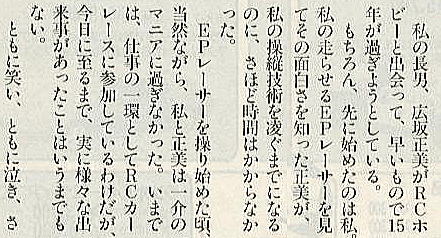 私の長男、広坂正美がRCホ
ビーと出会って、早いもので15
年が過ぎようとしている。
もちろん、先に始めたのは私。
私の走らせるEPレーサーを見
てその面白さを知った正美が、
私の操縦技術を凌ぐまでになる
のに、さほど時間はかからなか
った。
EPレーサーを操り始めた頃、
当然ながら、私と正美は一介の
マニアに過ぎなかった。いまで
は、仕事の一環としてRCカー
レースに参加しているわけだが、
今日に至るまで、実に様々な出
来事があったことはいうまでも
ない。
ともに笑い、ともに泣き、さ